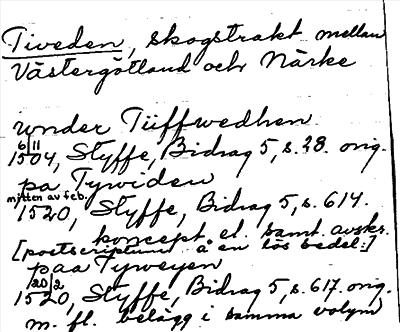 Tiveden, skogstrakt mellan
Västergötland och Närke
under Tüffwedhen
6/11
1504, Styffe, Bidrag 5, s. 28. orig.
pa Tywiden
mitten av feb.
1520, Styffe, Bidrag 5, s. 614.
koncept el. samt. avskr.
[postscriptum å en lös bedel:]
paa Tyweyen
20/2
1520, Styffe, Bidrag 5, s. 617. orig.
m. fl. belägg i samma volym